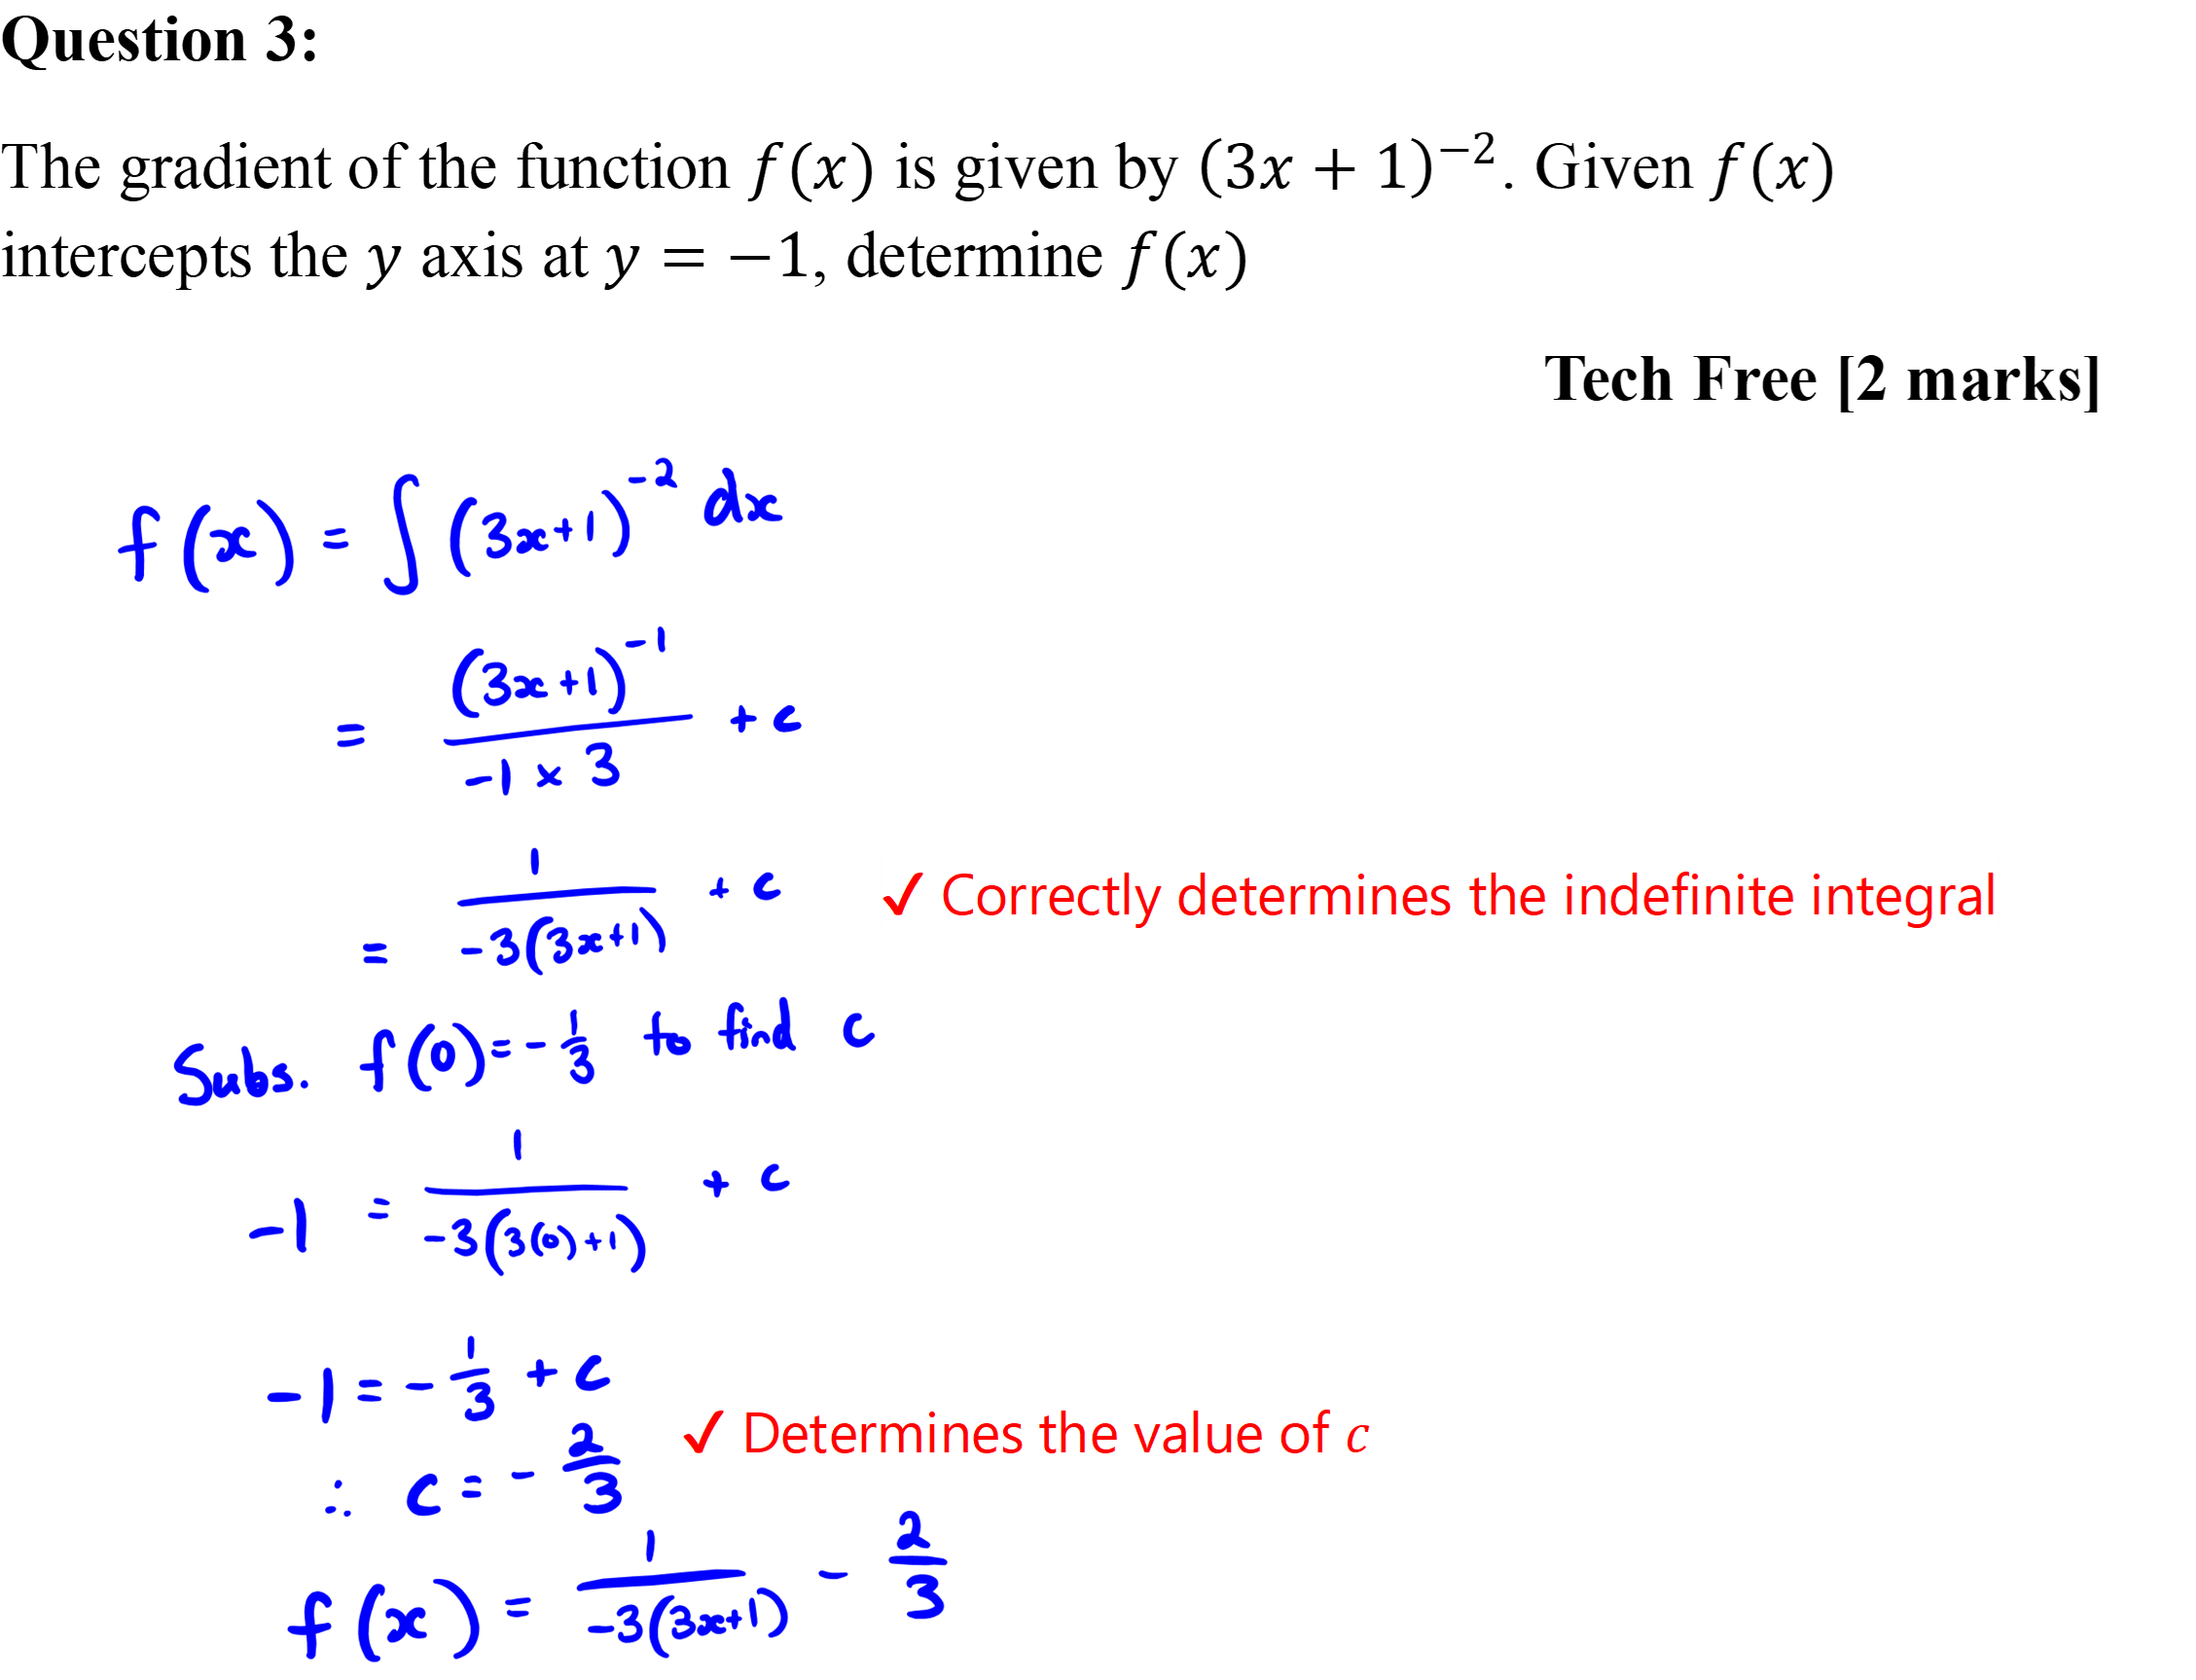 Question 3:
The gradient of the function f(x) is given by (3x + 1)⁻². Given f(x)
intercepts the y axis at y = −1, determine f(x)
Tech Free [2 marks]
f(x) = ∫(3x+1)⁻² dx
= (3x+1)⁻¹ / (−1 × 3) + c
= 1 / (−3(3x+1)) + c ✓ Correctly determines the indefinite integral
Subs. f(0) = −1/3 to find c
−1 = 1 / (−3(3(0)+1)) + c
−1 = −1/3 + c
∴ c = −2/3 ✓ Determines the value of c
f(x) = 1 / (−3(3x+1)) − 2/3